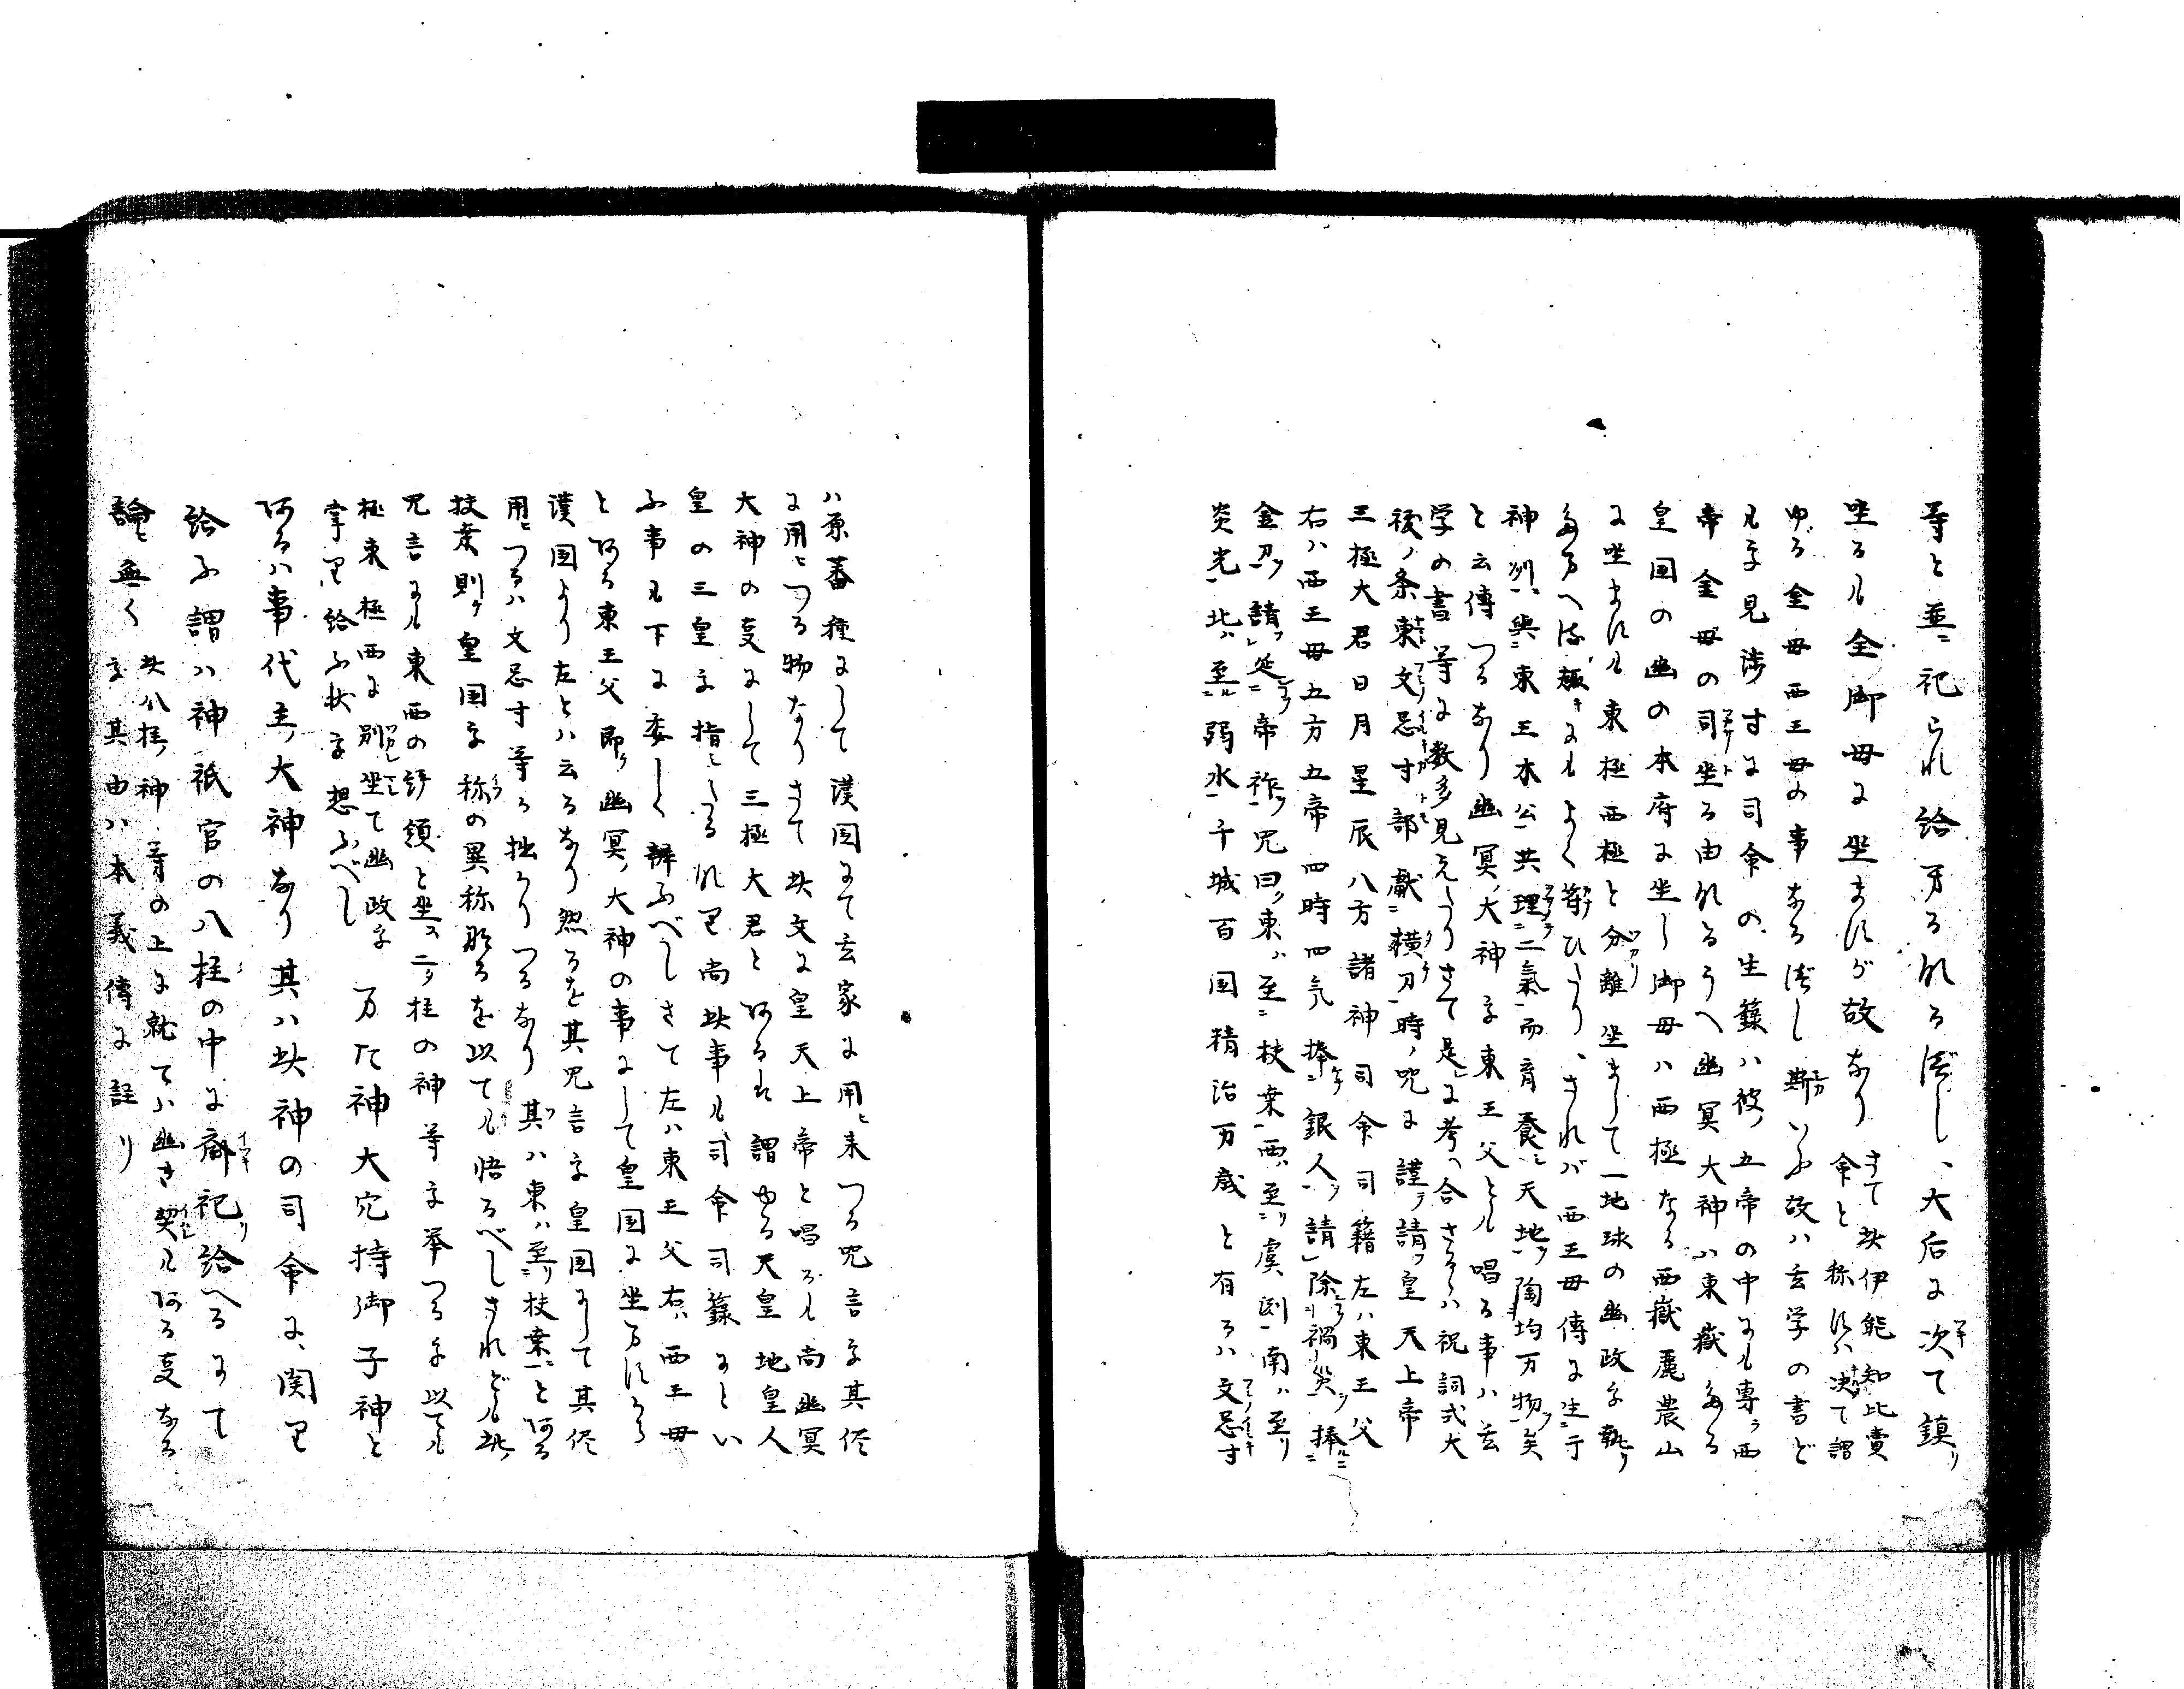 等と並ニ祀られ給万るれる徒し、大后に次て鎮リ
坐るも金御母に坐ますが故なり
さて此伊能知比売
命と称すハ決て謂
ゆる金母西王母の事なる徒し斯いふ故ハ玄学の書ど
も学見渉すに司命の生籙ハ彼ノ五帝の中にも専ラ西
帝金母の司坐る由れるうへ幽冥大神ハ東嶽なる
皇国の幽の本府に坐し御母ハ西極なる西嶽麗農山
に坐ますも東極西極と分離坐まして一地球の幽政を執り
給へる趣きにもよく符ひたり、されバ西王母傳に生ニ于
神洲一与ニ東王木公一共理ニ二氣一而育養ニ天地ヲ陶均万物ヲ矣
と云傳へつるなり幽冥ノ大神を東王父とも唱る事ハ玄
学の書等に数多見えたりさて是に考へ合さるゝハ祝詞式大
祓ノ条東文忌寸部献ニ横刀一時ノ咒に謹ヲ請ヲ皇天上帝
三極大君日月星辰八方諸神司命司籍左ハ東王父
右ハ西王母五方五帝四時四気捧ニ銀人一請レ除ニ禍災ヲ捧ニ
金刀ヲ請レ延ニ帝祚ヲ咒曰ク東ハ至ニ扶桒一西ハ至リ虞淵一南ハ至リ
炎光一北ハ至ニ弱水一千城百国精治万歳と有るハ文忌寸
ハ原蕃種にして漢国にて玄家に用ヒ来つる咒言を其侭
に用ヒつる物なりさて此文に皇天上帝と唱るも尚幽冥
大神の事にして三極大君とあるは謂ゆる天皇地皇人
皇の三皇を指したるなり尚此事も司命司籙にとい
ふ事も下に委しく辨ふべしさて左ハ東王父右ハ西王母
とある東王父即ク幽冥ノ大神の事にして皇国に坐ますから
漢国より左とハ云るなり然るを其咒言を皇国にて其侭
用ヒつるハ文忌寸等る拙かりつるなり其ハ東ハ至リ扶桒一とある
扶桒則ク皇国を称への異称なるを以ても悟るべしされども此ノ
咒言にも東西の拝領と坐ス二タ柱の神等を挙つるを以ても
極東極西に別レ坐て幽政を
掌り給ふ状を想ふべし
万た神大穴持御子神と
あるハ事代主ノ大神なり其ハ此神の司命に関り
給ふ謂ハ神祇官の八柱の中に斎祀リ給へるにて
論ヒ無く
此八柱ノ神等の上に就てハ幽き契も有る事なる
を其由ハ本義傳に註り